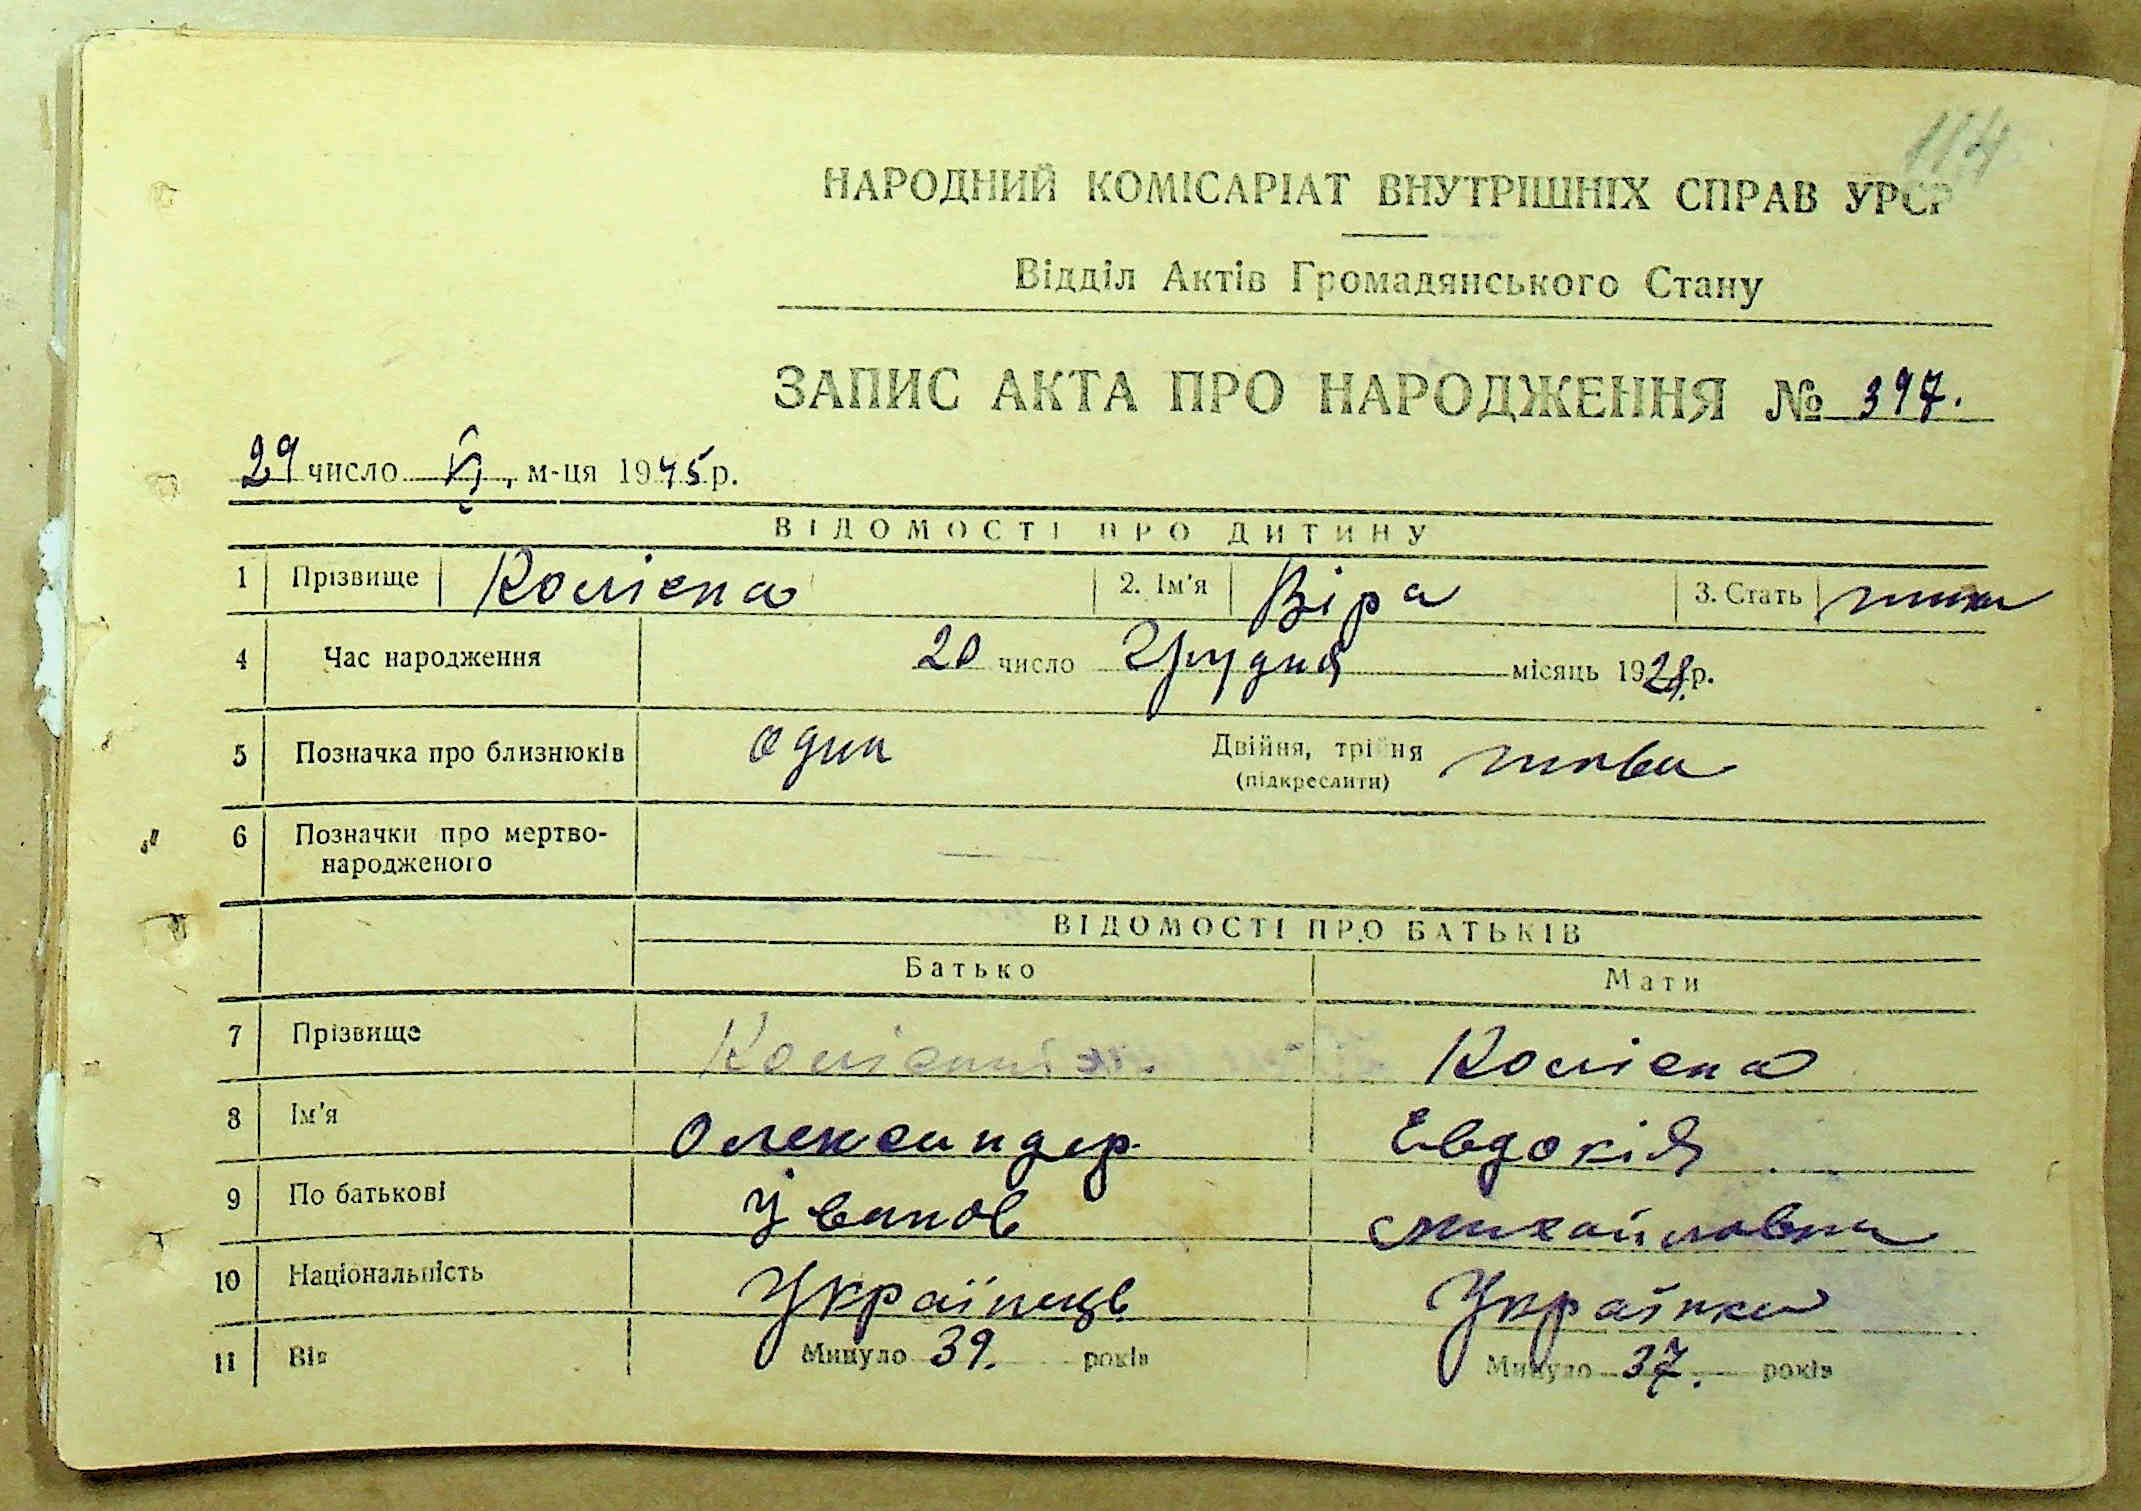 114
НАРОДНИЙ КОМІСАРІАТ ВНУТРІШНІХ СПРАВ УРСР
Відділ Актів Громадянського Стану
ЗАПИС АКТА ПРО НАРОДЖЕННЯ № 397.
29 число VI, м-ця 1945 р.
ВІДОМОСТІ ПРО ДИТИНУ
1 Прізвище Колієна 2. Ім'я Віра 3. Стать
4 Час народження 20 число Грудня місяць 1928 р.
5 Позначка про близнюків один Двійня, трійня
(підкреслити)
6 Позначки про мертво-
народженого —
ВІДОМОСТІ ПРО БАТЬКІВ
Батько Мати
7 Прізвище Колієна
8 Ім'я Олександер Евдокія
9 По батькові Іванов Михайловна
10 Національність Українець Українка
11 Вік Минуло 39. років Минуло 37. років